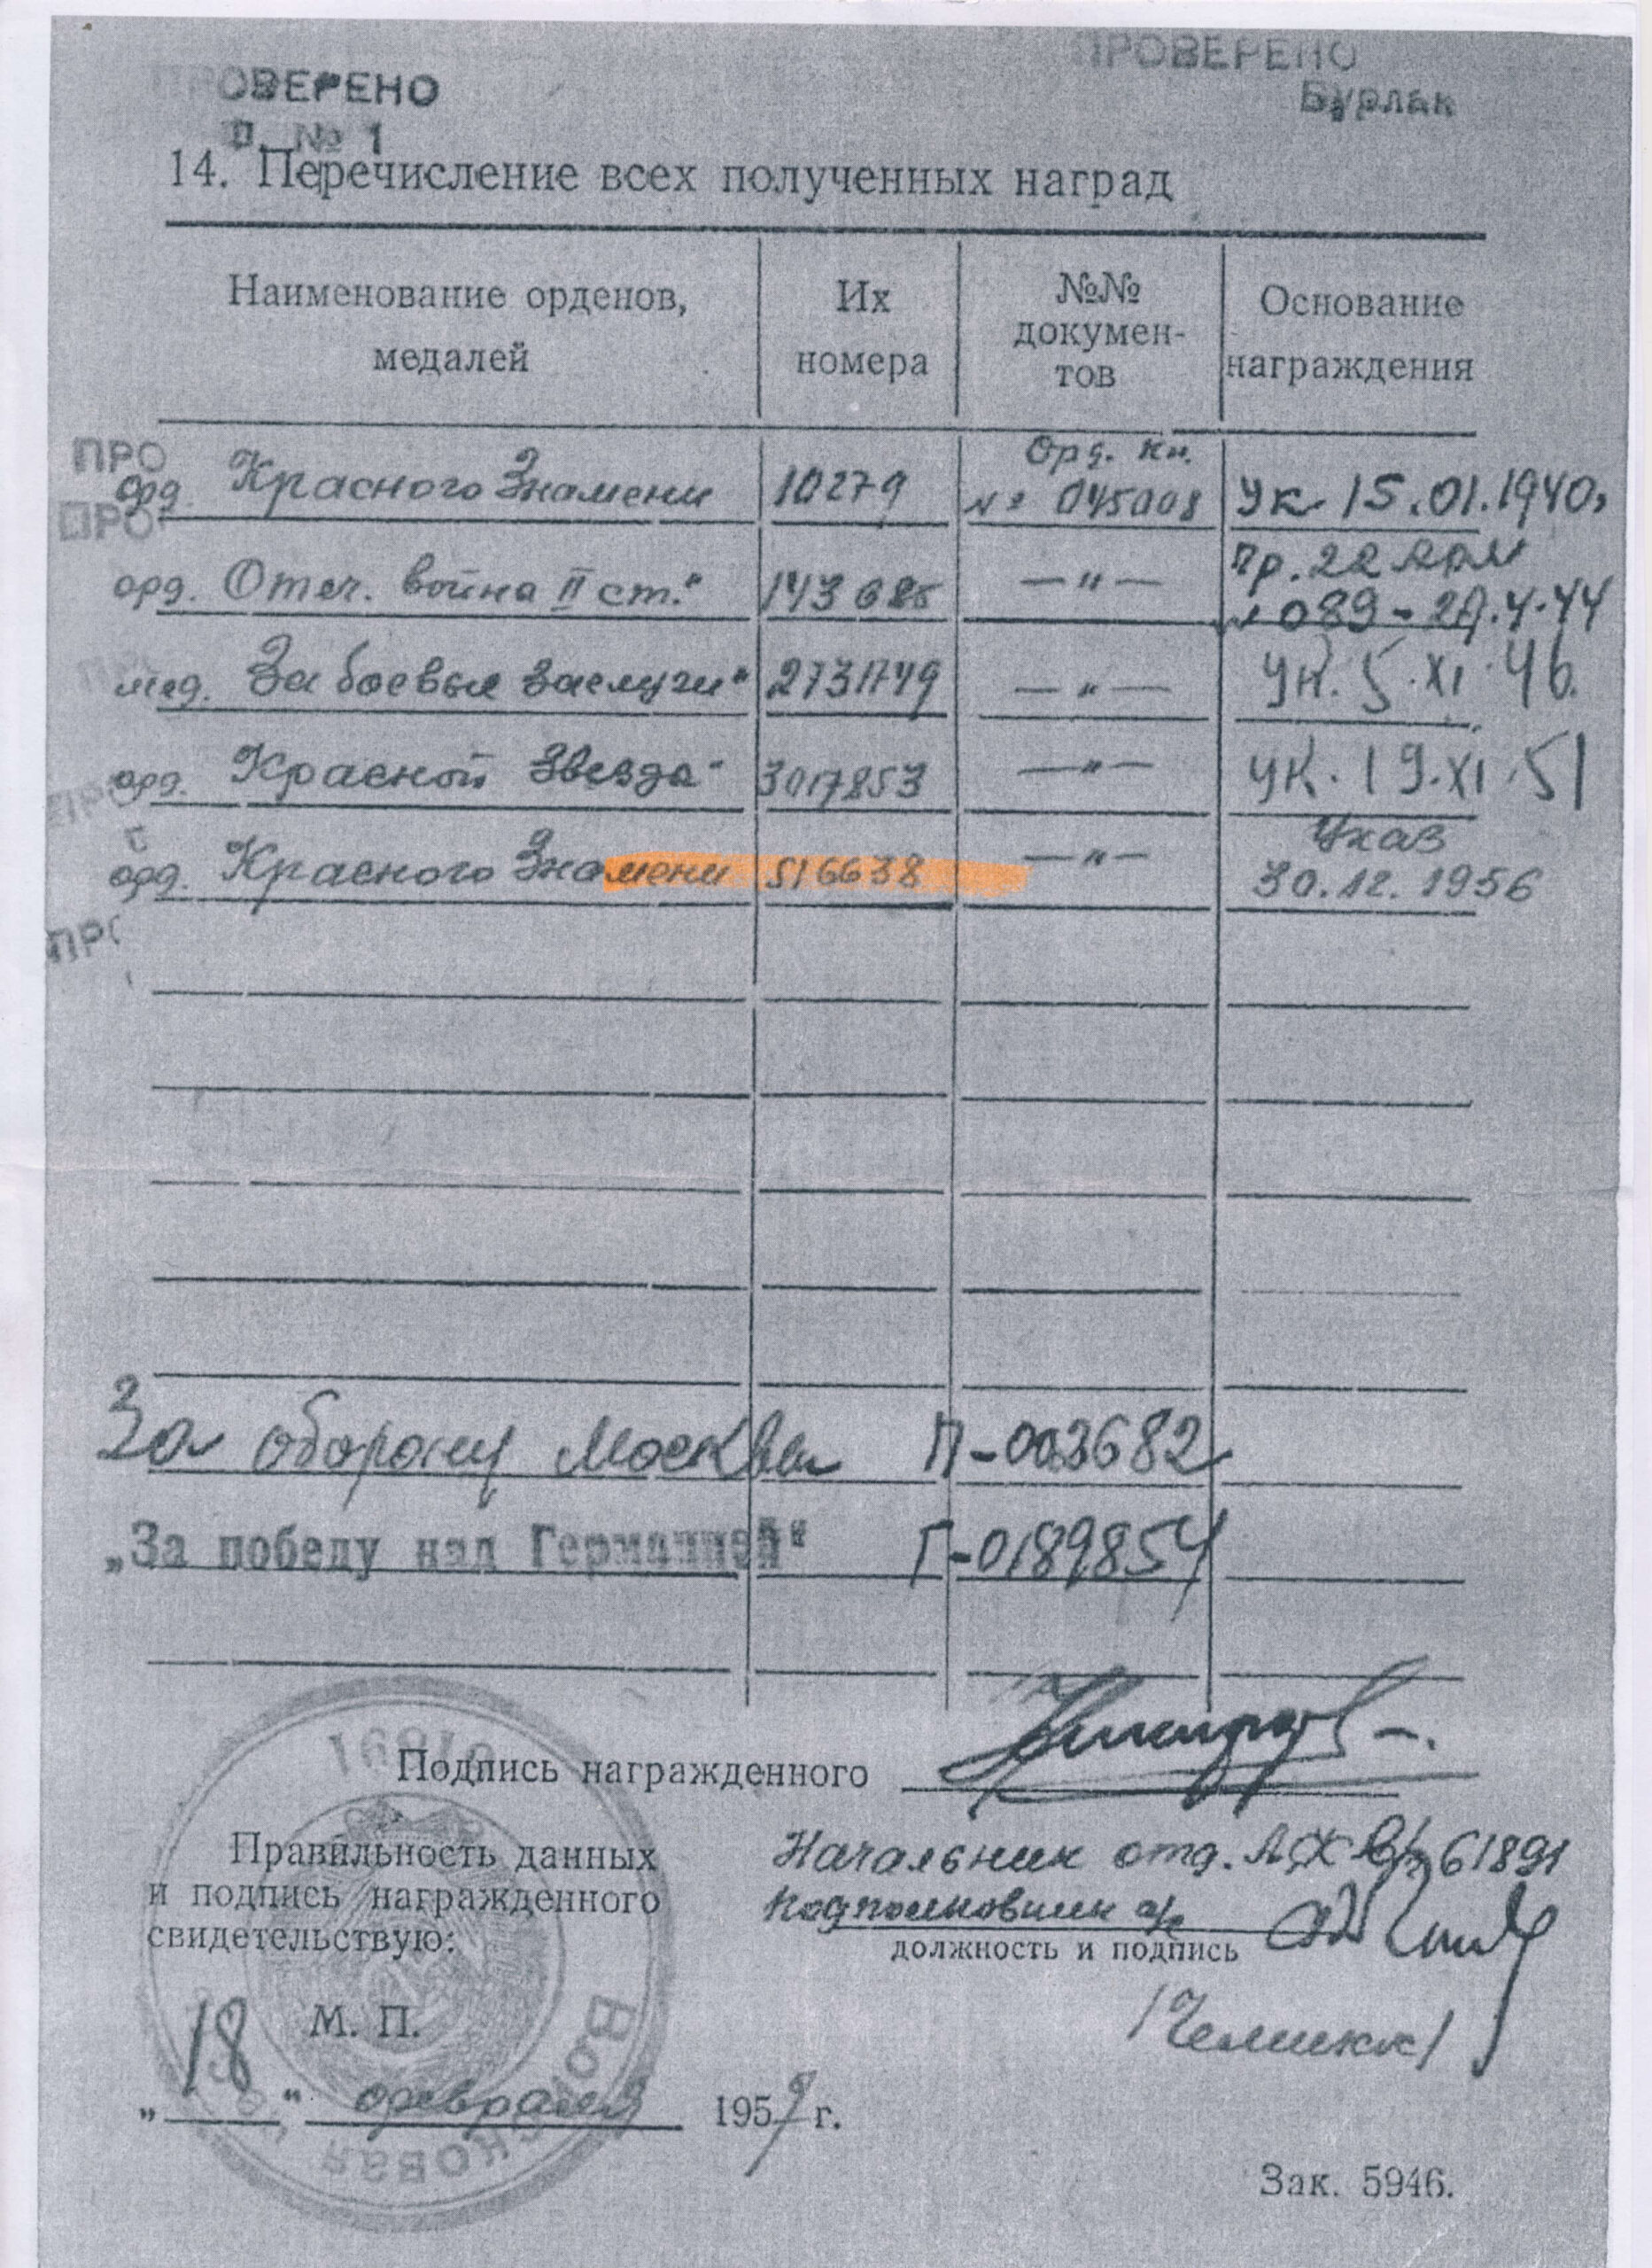 ПРОВЕРЕНО
Бурлак
ПРОВЕРЕНО
П. № 1
14. Перечисление всех полученных наград
Наименование орденов, медалей
Их номера
№№ докумен-тов
Основание награждения
ПРО
орд. Красного Знамени 10279 Орд. кн. № 045008 Ук 15.01.1940г
ПРО
орд. Отеч. война II ст." 143685 —"— Пр. 22 № 089 - 4.44
мед. За боевые заслуги" 2731749 —"— Ук. 5.XI.46.
орд. Красной Звезда" 3017853 —"— Ук. 19.XI.51
орд. Красного Знамени 516638 —"— Указ 30.12.1956
ПРО
За оборону Москвы П-003682
„За победу над Германией“ Г-0189854
Подпись награжденного
Правильность данных
и подпись награжденного
свидетельствую:
Начальник отд. АХ в/ч 61891
подполковник а/с
должность и подпись
М. П.
„18“ февраля 1959 г.
Зак. 5946.
61891
Войсковая